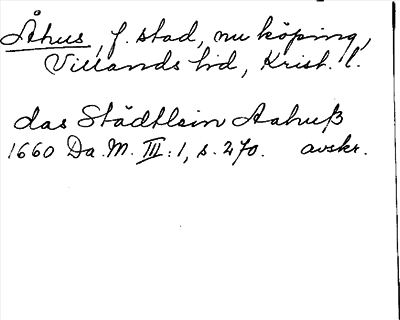 Åhus, f. stad, nu köping,
Villands hd, Krist. l.
das Städtlein Aahuß
1660 Da. M. III:1, s. 270. avskr.